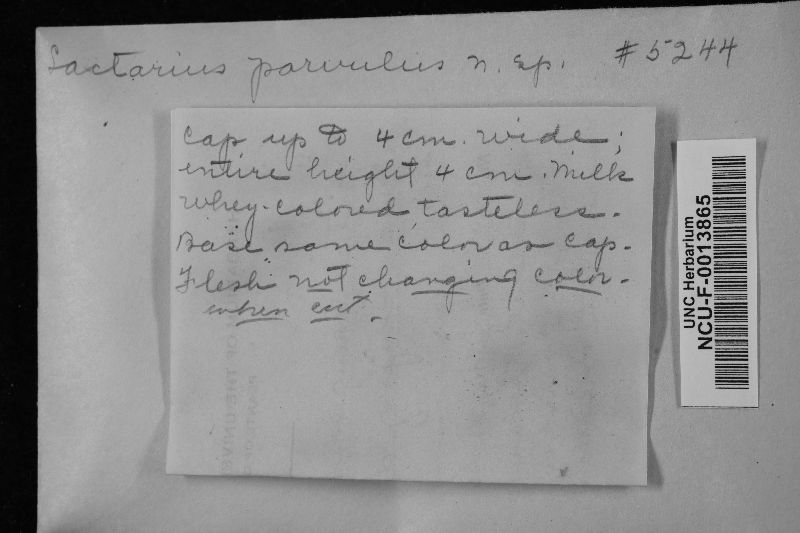 Lactarius parvulus n. sp. #5244
Cap up to 4 cm. wide;
entire height 4 cm. Milk
whey-colored tasteless.
Base same color as cap.
Flesh not changing color
when cut.
UNC Herbarium
NCU-F-0013865